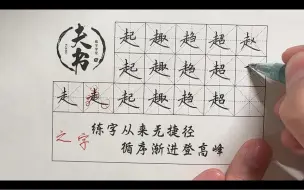 夫书
起 趣 趋 超 赵
起 趣 趋 超
走 走 起 趣 趋 超
之字
练字从来无捷径
循序渐进登高峰